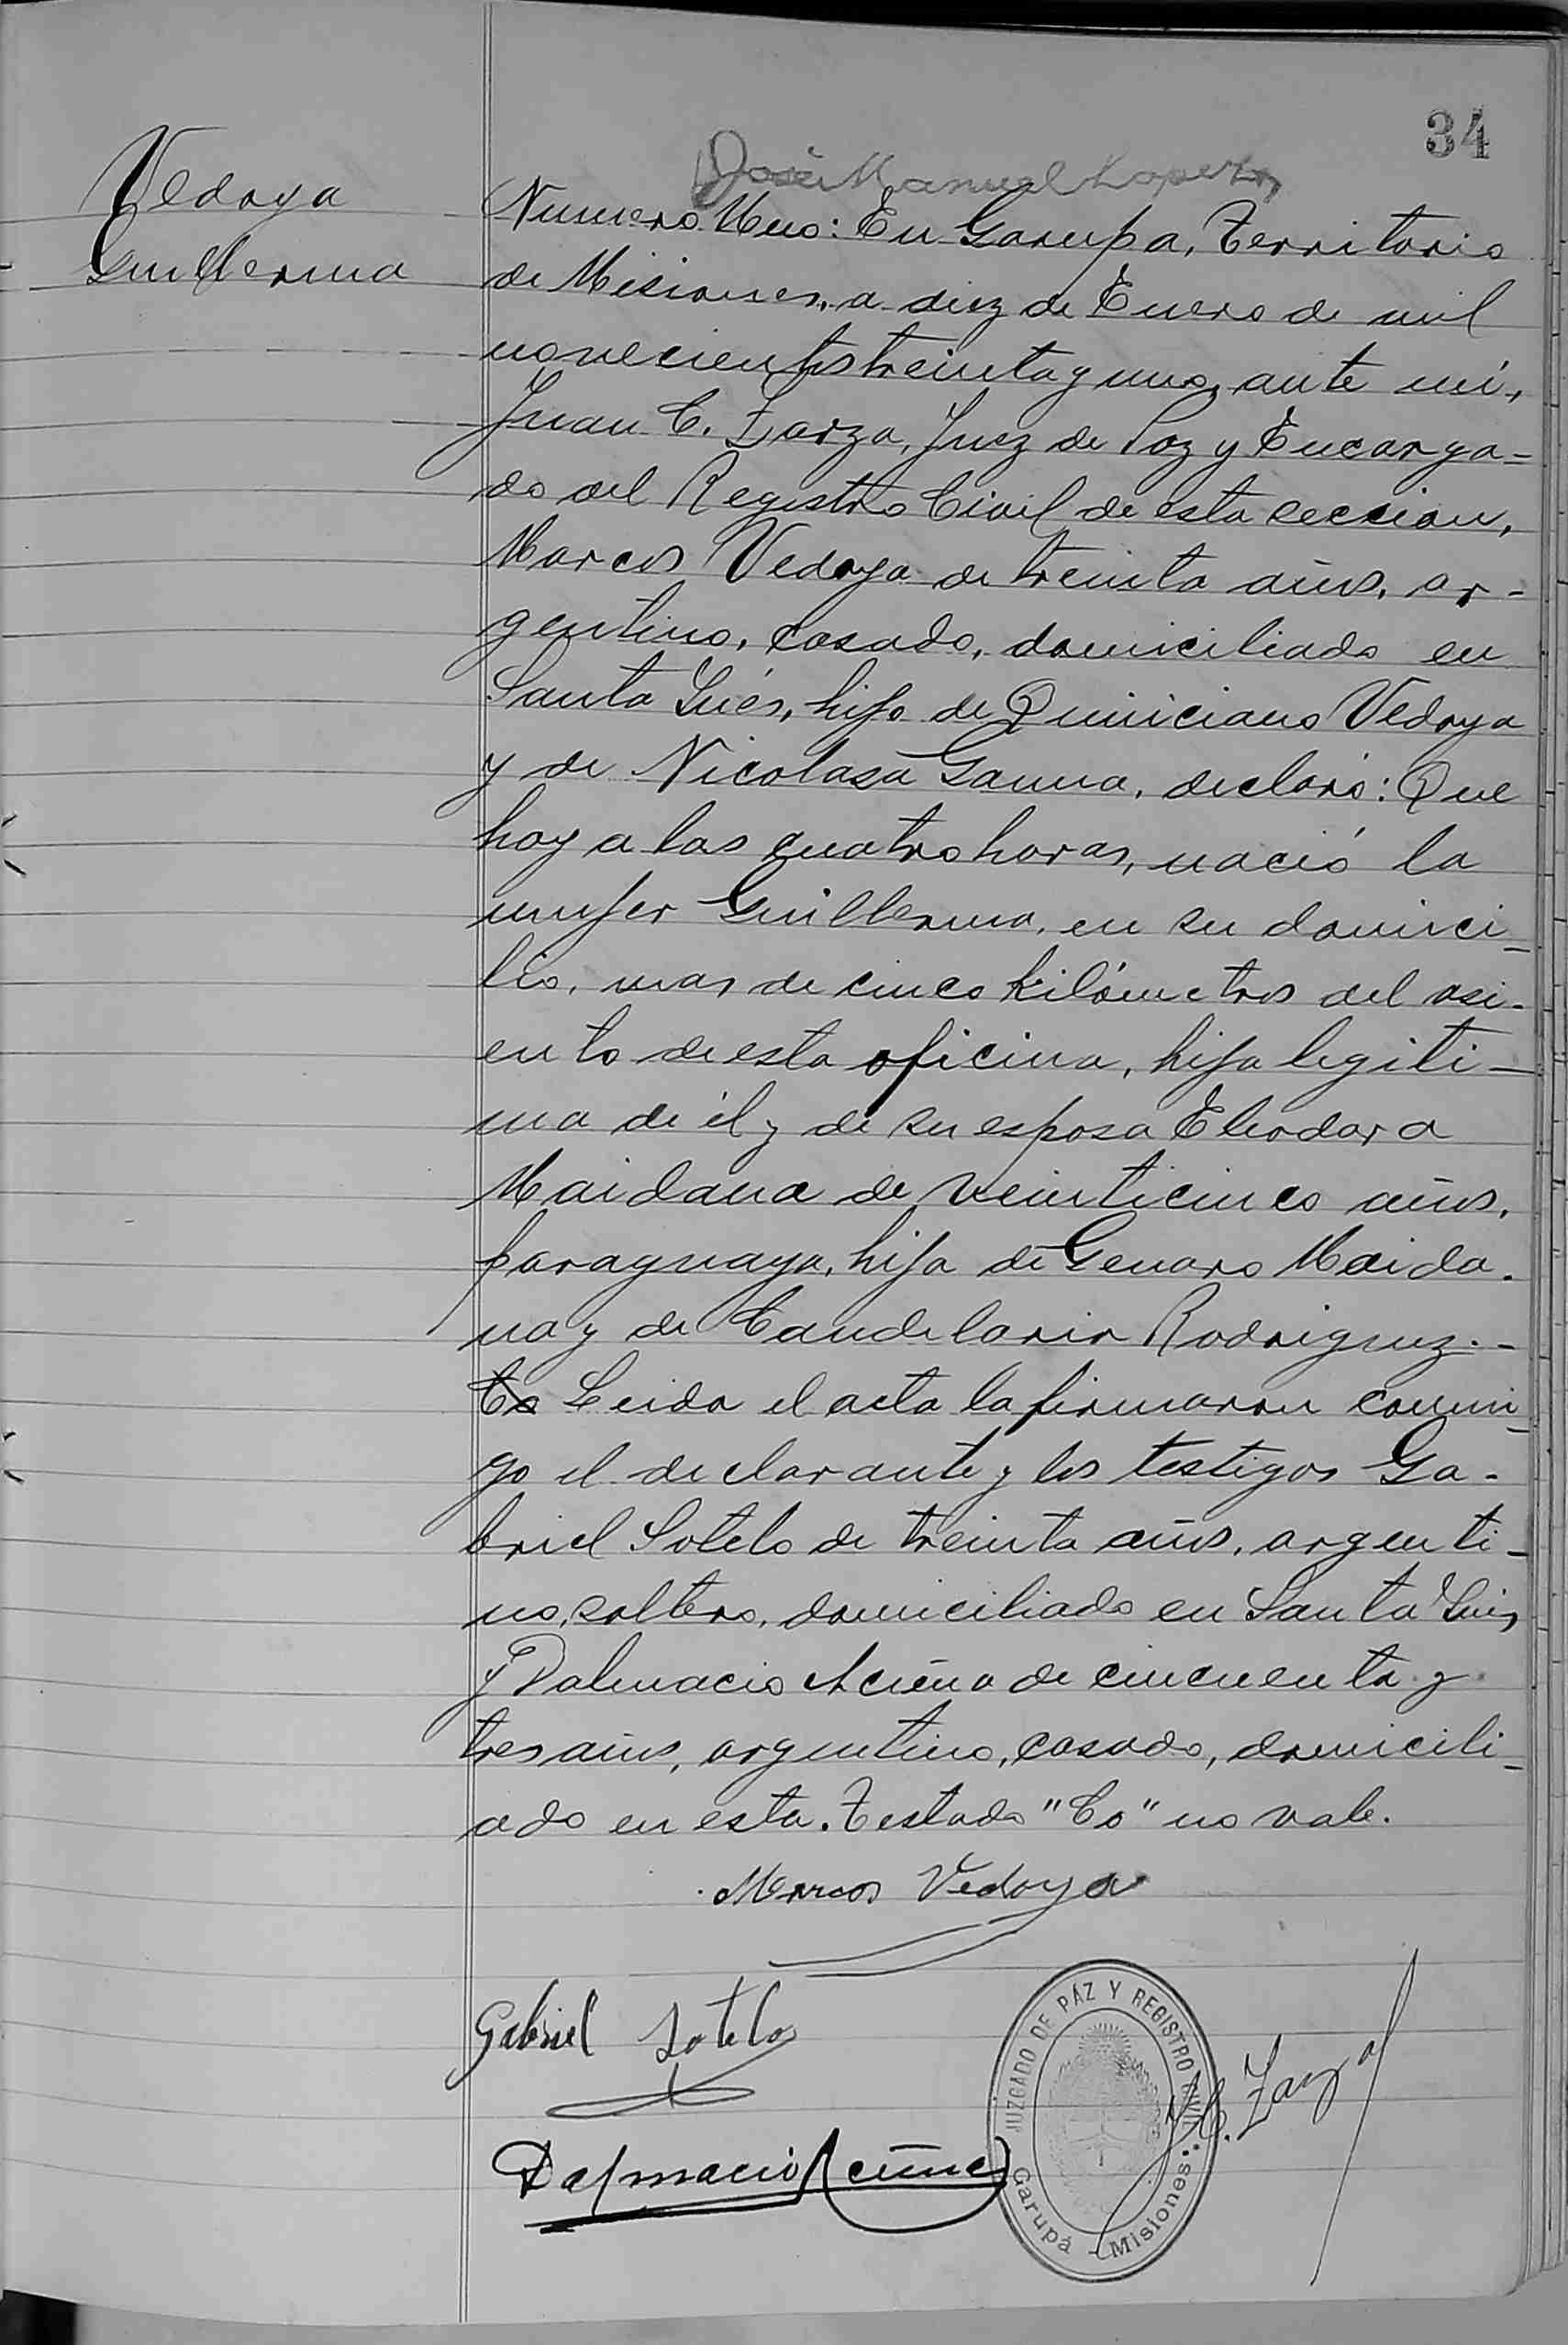 34
José Manuel Lopez
Vedoya
Guillerma
Numero Uno: En Garupa, Territorio
de Misiones, a diez de Enero de mil
novecientos treinta y uno, ante mi,
Juan C. Zarza, Juez de Paz y Encarga=
do del Registro Civil de esta seccion,
Marcos Vedoya de treinta años, ar-
gentino, casado, domiciliado en
Santa Inés, hijo de Quiniciano Vedoya
y de Nicolasa Gauna, declaró: Que
hoy a las cuatro horas, nació la
mujer Guillerma, en su domici-
lio, mas de cinco kilómetros del asi-
ento de esta oficina, hija legiti-
ma de él y de su esposa Eleodora
Maidana de veinticinco años,
paraguaya, hija de Genaro Maida-
na y de Candelaria Rodriguez.-
Co Leida el acta la firmaron conmi-
go el declarante y los testigos Ga-
briel Sotelo de treinta años, argenti-
no, soltero, domiciliado en Santa Inés
y Dalmacio Acuña de cincuenta y
tres años, argentino, casado, domicili-
ado en esta. Testado "Co" no vale.
Marcos Vedoya
Gabriel Sotelo
Dalmacio Acuña
J. C. Zarza
JUZGADO DE PÁZ Y REGISTRO CIVIL
Garupá - Misiones